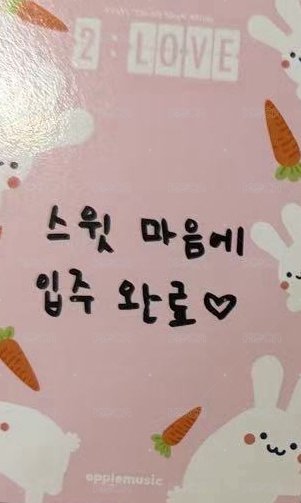 2 : LOVE
스윗 마음에
입주 완료♡
applemusic